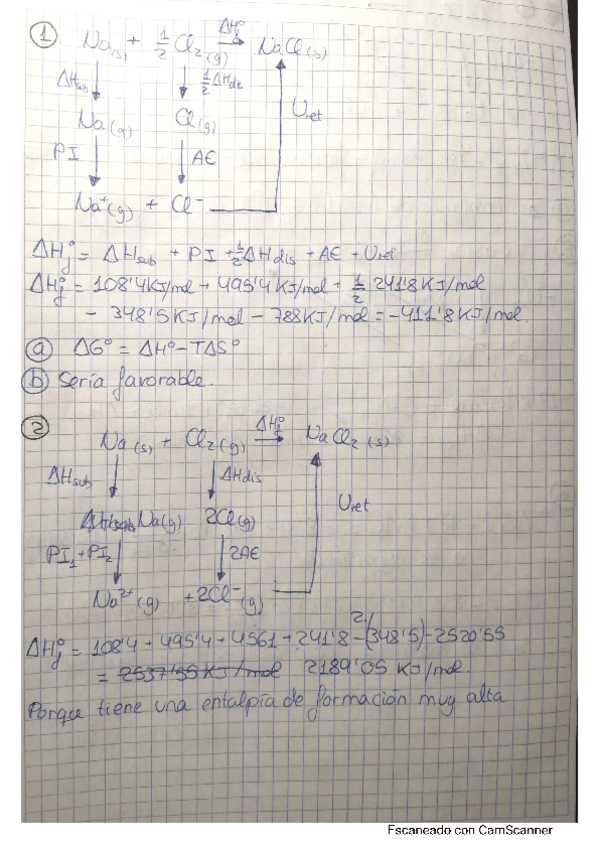 ① Na(s) + 1/2 Cl2(g) ΔHf° → NaCl(s)
ΔHsub ↓ ↓ 1/2 ΔHdis
Na(g) Cl(g) Uret
PI ↓ ↓ AE
Na+(g) + Cl-
ΔHf° = ΔHsub + PI + 1/2 ΔHdis + AE + Uret
ΔHf° = 108'4 KJ/mol + 495'4 KJ/mol + 1/2 241'8 KJ/mol
- 348'5 KJ/mol - 788 KJ/mol = -411'8 KJ/mol.
ⓐ ΔG° = ΔH° - TΔS°
ⓑ Sería favorable.
② Na(s) + Cl2(g) ΔHf° → NaCl2(s)
ΔHsub ↓ ↓ ΔHdis
Na(g) 2Cl(g) Uret
PI1 + PI2 ↓ ↓ 2AE
Na2+(g) + 2Cl-(g)
ΔHf° = 108'4 + 495'4 + 4561 + 241'8 - 2(348'5) - 2520'55
= 2537'55 KJ/mol 2189'05 KJ/mol.
Porque tiene una entalpía de formación muy alta
Escaneado con CamScanner